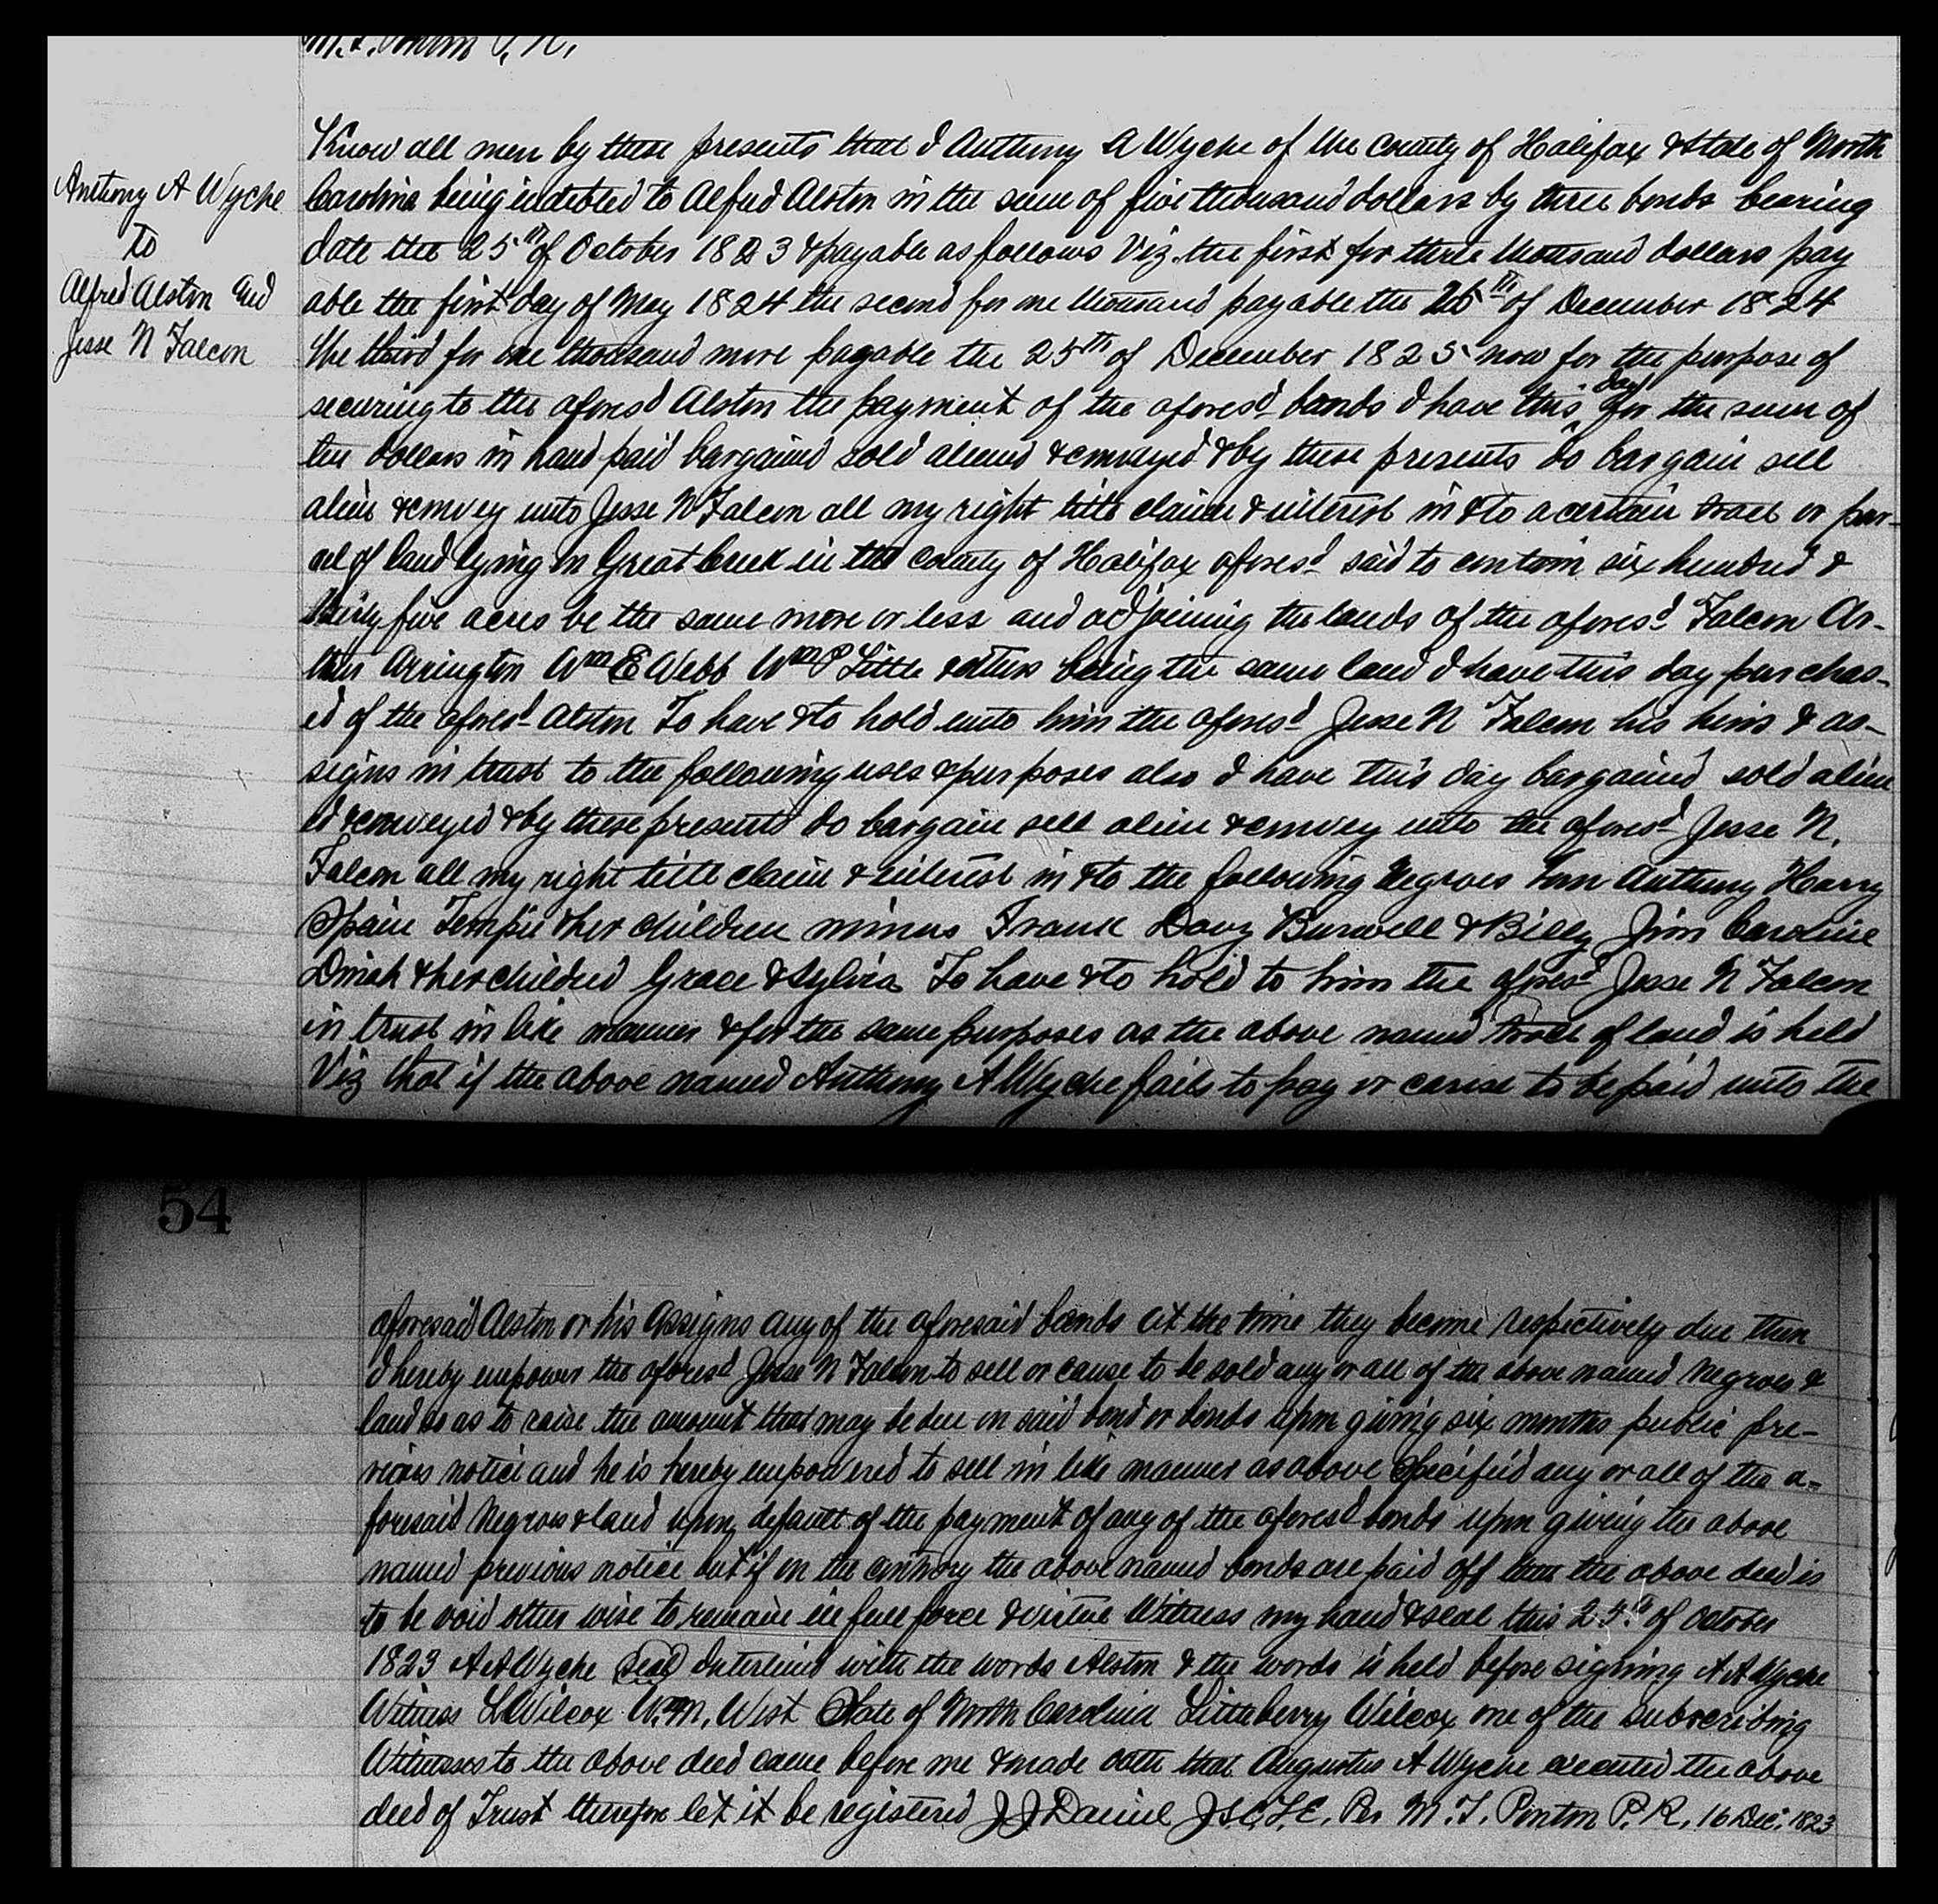 Know all men by these presents that I Anthony A Wyche of the County of Halifax & State of North
Anthony A Wyche
to
Alfred Alston and
Jesse N Falcon
Carolina being indebted to Alfred Alston in the sum of five thousand dollars by three bonds bearing
date the 25th of October 1823 & payable as follows Viz. the first for three thousand dollars pay
able the first day of May 1824 the second for one thousand payable the 25th of December 1824
the third for one thousand more payable the 25th of December 1825 now for the purpose of
securing to the aforesd Alston the payment of the aforesd bonds I have this day for the sum of
ten dollars in hand paid bargained sold aliend & conveyed & by these presents do bargain sell
alien & convey unto Jesse N Falcon all my right title claim & interest in & to a certain tract or par-
cel of land lying on Great Creek in the County of Halifax aforesd said to contain six hundred &
thirty five acres be the same more or less and adjoining the lands of the aforesd Falcon Ar-
thur Arrington Wm E Webb Wm P Little & others being the same land I have this day purchas-
ed of the aforesd Alston To have & to hold unto him the aforesd Jesse N Falcon his heirs & as-
signs in trust to the following uses & purposes also I have this day bargained sold alien
ed & conveyed & by these presents do bargain sell alien & convey unto the aforesd Jesse N.
Falcon all my right title claim & interest in & to the following Negroes Tom Anthony Harry
Spain Tempie & her children minus Frank Davy Burwell & Billy Jim Caroline
Dinah & her children Grace & Sylvia To have & to hold to him the aforesd Jesse N Falcon
in trust in like manner & for the same purposes as the above named tract of land is held
Viz that if the above named Anthony A Wyche fails to pay or cause to be paid unto the
54
aforesaid Alston or his assigns any of the aforesaid bonds at the time they become respectively due then
I hereby empower the aforesd Jesse N Falcon to sell or cause to be sold any or all of the above named Negroes &
land so as to raise the amount that may be due on said bond or bonds upon giving six months public pre-
vious notice and he is hereby empowered to sell in like manner as above specified any or all of the a-
foresaid Negroes & land upon default of the payment of any of the aforesd bonds upon giving the above
named previous notice but if on the contrary the above named bonds are paid off then the above deed is
to be void other wise to remain in full force & virtue Witness my hand & seal this 25th of October
1823 A A Wyche Seal Interlined with the words Alston & the words is held before signing A A Wyche
Witness L Wilcox Wm. West State of North Carolina Littleberry Wilcox one of the subscribing
Witnesses to the above deed came before me & made oath that Augustus A Wyche executed the above
deed of Trust therefore let it be registered J J Daniel J.S.C.L.E. Per M. T. Ponton P. R. 16 Dec. 1823